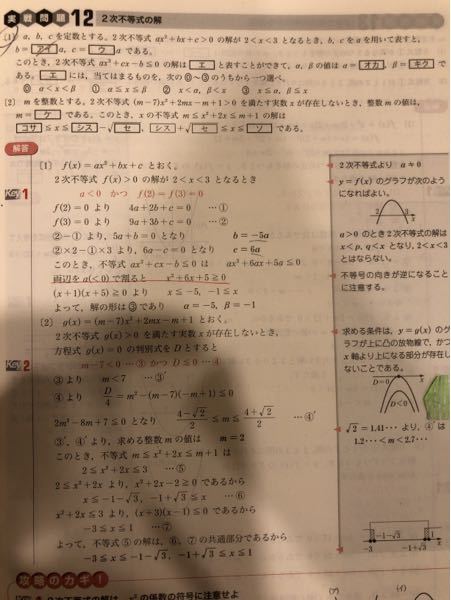 実戦問題 12 2次不等式の解
〔1〕 a, b, c を定数とする。2次不等式 ax²+bx+c>0 の解が 2<x<3 となるとき, b, c を a を用いて表すと,
b=アイa, c=ウa である。
このとき, 不等式 ax²+cx-b≦0 の解は エ と表すことができて, α, β の値は α=オカ, β=キク である。
エ には, 当てはまるものを, 次の⓪~③のうちから一つ選べ。
⓪ α<x<β ① α≦x≦β ② x<α, β<x ③ x≦α, β≦x
〔2〕 m を整数とする。2次不等式 (m-7)x²+2mx-m+1>0 を満たす実数 x が存在しないとき, 整数 m の値は,
m=ケ である。このとき, x の不等式 m≦x²+2x≦m+1 の解は
コサ≦x≦シス-√セ, シス+√セ≦x≦ソ である。
解答
〔1〕 f(x)=ax²+bx+c とおく。
2次不等式 f(x)>0 の解が 2<x<3 となるとき
Key 1
a<0 かつ f(2)=f(3)=0
f(2)=0 より 4a+2b+c=0 …①
f(3)=0 より 9a+3b+c=0 …②
②-① より, 5a+b=0 となり b=-5a
②×2-①×3 より, 6a-c=0 となり c=6a
このとき, 不等式 ax²+cx-b≦0 は ax²+6ax+5a≦0
両辺を a(<0) で割ると x²+6x+5≧0
(x+1)(x+5)≧0 より x≦-5, -1≦x
よって, 解の形は③であり α=-5, β=-1
〔2〕 g(x)=(m-7)x²+2mx-m+1 とおく。
2次不等式 g(x)>0 を満たす実数 x が存在しないとき,
方程式 g(x)=0 の判別式を D とすると
Key 2
m-7<0 …③ かつ D≦0 …④
③より m<7 …③′
④より D/4=m²-(m-7)(-m+1)≦0
2m²-8m+7≦0 となり (4-√2)/2≦m≦(4+√2)/2 …④′
③′, ④′ より, 求める整数 m の値は m=2
このとき, 不等式 m≦x²+2x≦m+1 は
2≦x²+2x≦3 …⑤
2≦x²+2x より, x²+2x-2≧0 であるから
x≦-1-√3, -1+√3≦x …⑥
x²+2x≦3 より, (x+3)(x-1)≦0 であるから
-3≦x≦1 …⑦
よって, 不等式⑤の解は, ⑥, ⑦の共通部分であるから
-3≦x≦-1-√3, -1+√3≦x≦1
2次不等式より a≠0
y=f(x) のグラフが次のように
なればよい。
2 3 x
a>0 のとき2次不等式の解は
x<p, q<x となり, 2<x<3
とならない。
不等号の向きが逆になること
に注意する。
求める条件は, y=g(x) の
グラフが上に凸の放物線で, かつ
x軸より上になる部分が存在し
ないことである。
D=0 x
D<0
√2=1.41… より, ④′ は
1.2…<m<2.7…
-1-√3 1
-3 -1+√3 x
攻略のカギ!
の係数の符号に注意せよ
(ア) (イ)